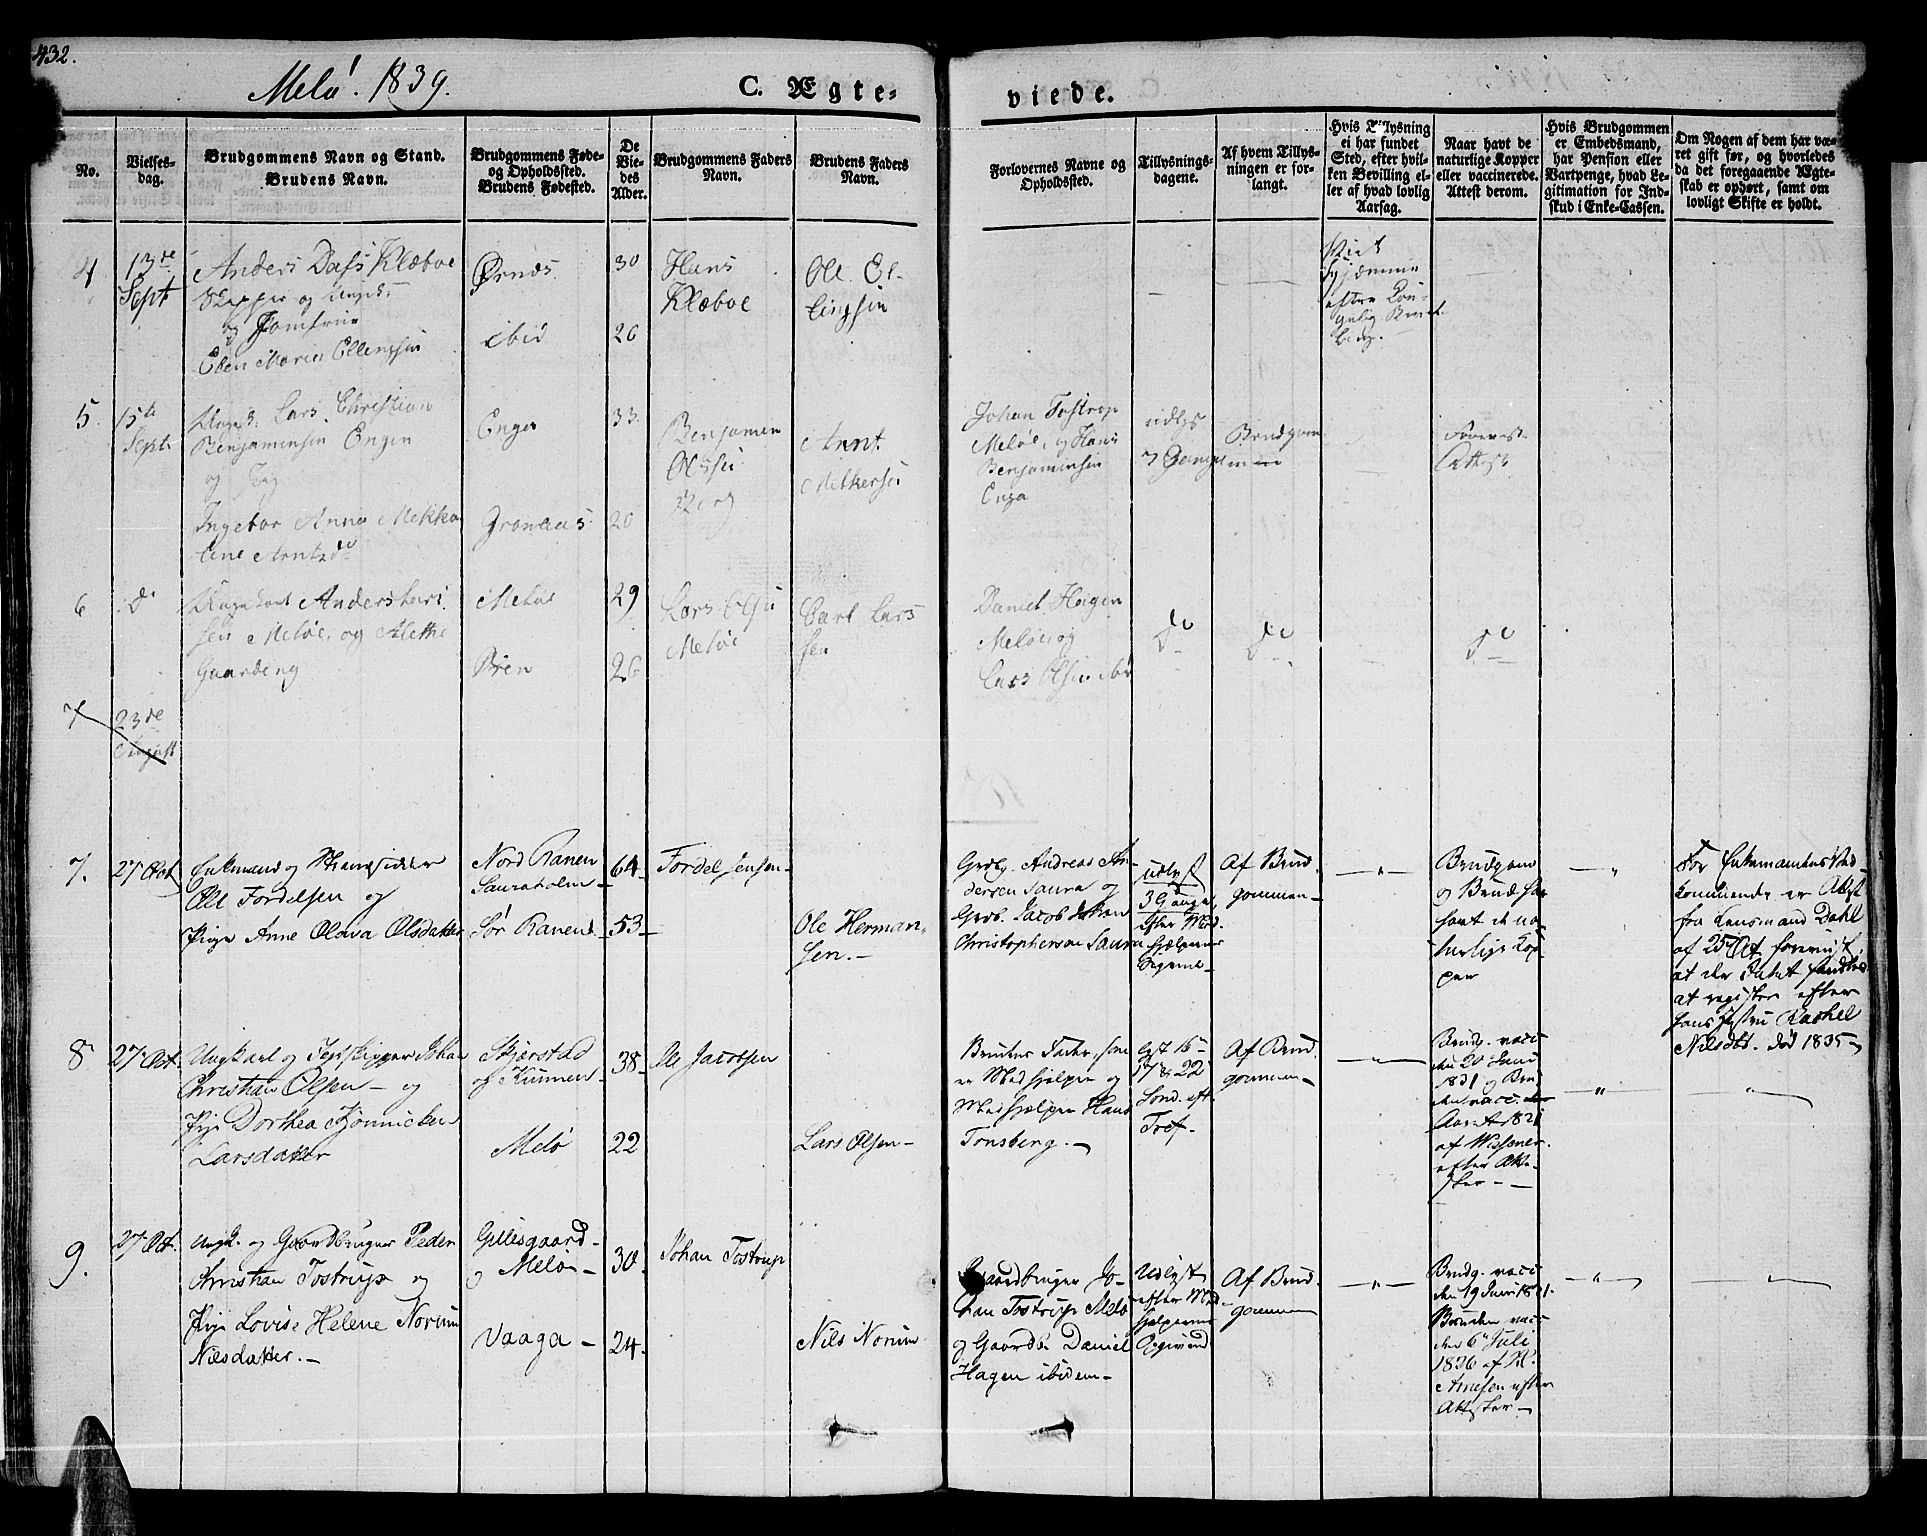 432.
Melö. 1839.
C. Ægte-
viede.
No.
Vielses-
dag.
Brudgommens Navn og Stand.
Brudens Navn.
Brudgommens Føde-
og Opholdssted.
Brudens Fødested.
De
Vie-
des
Alder.
Brudgommens Faders
Navn.
Brudens Faders
Navn.
Forlovernes Navne og
Opholdssted.
Tillysnings-
dagene.
Af hvem Tillys-
ningen er for-
langt.
Hvis Tillysning
ei har fundet
Sted, efter hvil-
ken Bevilling el-
ler af hvad lovlig
Aarsag.
Naar havt de
naturlige Kopper
eller vaccinerede.
Attest derom.
Hvis Brudgommen
er Embedsmand,
har Pension eller
Vartpenge, hvad Le-
gitimation for Ind-
skud i Enke-Cassen.
Om Nogen af dem har væ-
ret gift før, og hvorledes
da det foregaaende Ægte-
skab er ophørt, samt om
lovligt Skifte er holdt.
4
13de
Sept
Anders Dass Klæboe
og
og Jomfrue
Elen Maria Ellingsen
Ørnes
ibid
30
26
Hans
Klæboe
Ole El-
lingsen
Viet
hjemme
efter Kon-
gelig Bevil-
ling.
5
15de
Sept.
Ungk. Lars Christian
Benjaminsen Engen
og Pige
Ingebor Anna Mekka
line Arntzdr
Enga
Grønaas
33.
20
Benjamin
Olsen
Arnt
Melkersen
Johan Tostrup
Meløe, og Hans
Benjaminsen
Enga
3 Gange
Brudgom
men
Forevist
Attest
6
do
Ungkarl Anders Lars
sen Meløe, og Alethe
Gaarberg
Meløe
Øren
29
26
Lars Olsen
Meløe
Carl Lars
sen
Daniel Hagen
Meløe og
Lars Olsen ibd
do
do
do
7
23de
August
7.
27 Oct
Enkemand og Strandsidder
Ole Fordelsen og
Pige Anne Olava Olsdatter
Nord Ranen
Sauraholm
Sør Ranen
64
53
Fordel Jensen
Ole Herman-
sen.-
Grdbg. Andreas An-
dersen Saura og
Grdb. Jacob Johan
Christophersen Saura
udlyst
3 Gange
efter Med-
hjælpernes
Opgivende
Af Brud
gommen-
-"-
Brudgom
og Brud har
havt de na
turlige Kop
per
"
For Enkemandens Ved-
kommende er Attest
fra Lensmand Dahl
af 25 Oct forevist,
at der Intet fandtes
at registere efter
hans Hustru Rachel
Nilsdtr. død 1835-
8
27 Oct.
Ungkarl og Jegtskipper Johan
Christian Olsen - og
Pige Dorthea Jønnicken
Larsdatter
Skjerstad
og Kunnen
Melö
38
22
Ole Jacobsen
Lars Olsen-
Brudens Fader, som
er Medhjelper og
Medhjelper Hans
Tønsberg.-
lyst 15-
17 & 22
Sond. eft.
Tref.
Af Brud
gommen-
-"-
Brudg. vacc
den 20 Juni
1831 og Bru
den vacc.
Aaret 1821
af Wissener.
efter Atte-
ster--
"
"
9.
27 Oct.
Ungk. og Gaardbruger Peder
Christian Tostrup og
Pige Lovise Helene Norum
Nilsdatter.-
Gillesgaard-
og Melö-
Vaaga-
30.
24.
Johan Tostrup
Nils Norum
Gaardbruger Jo-
han Tostrup Melö
og Gaardb. Daniel
Hagen ibidem-
Udlyst
efter Med-
hjelpernes
Opgivend
Af Brud.
gommen
-"-
Brudg. vacc
den 19 Juni 1821.
Bruden vacc
den 6 Juli
1826 af Kl.
Arnesen efter
Attester-
-"-
"